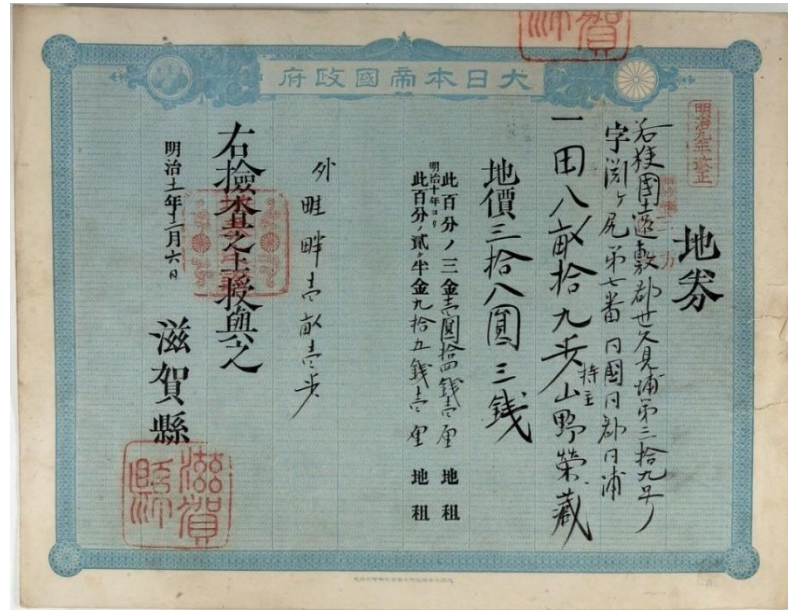 大日本帝國政府
明治九年改正
地券
若狹國遠敷郡世久見浦第三拾九号ノ
字渕ヶ尻第七番 同國同郡同浦
一田八畝拾九歩 持主 山野榮藏
地價三拾八圓三銭
此百分ノ三金壱圓拾四銭壱厘 地租
明治十年ヨリ
此百分ノ貳ヶ半金九拾五銭壱厘 地租
外 畦畔壱畝壱歩
右檢査之上授與之
明治十二年十二月六日
滋賀縣
滋賀縣